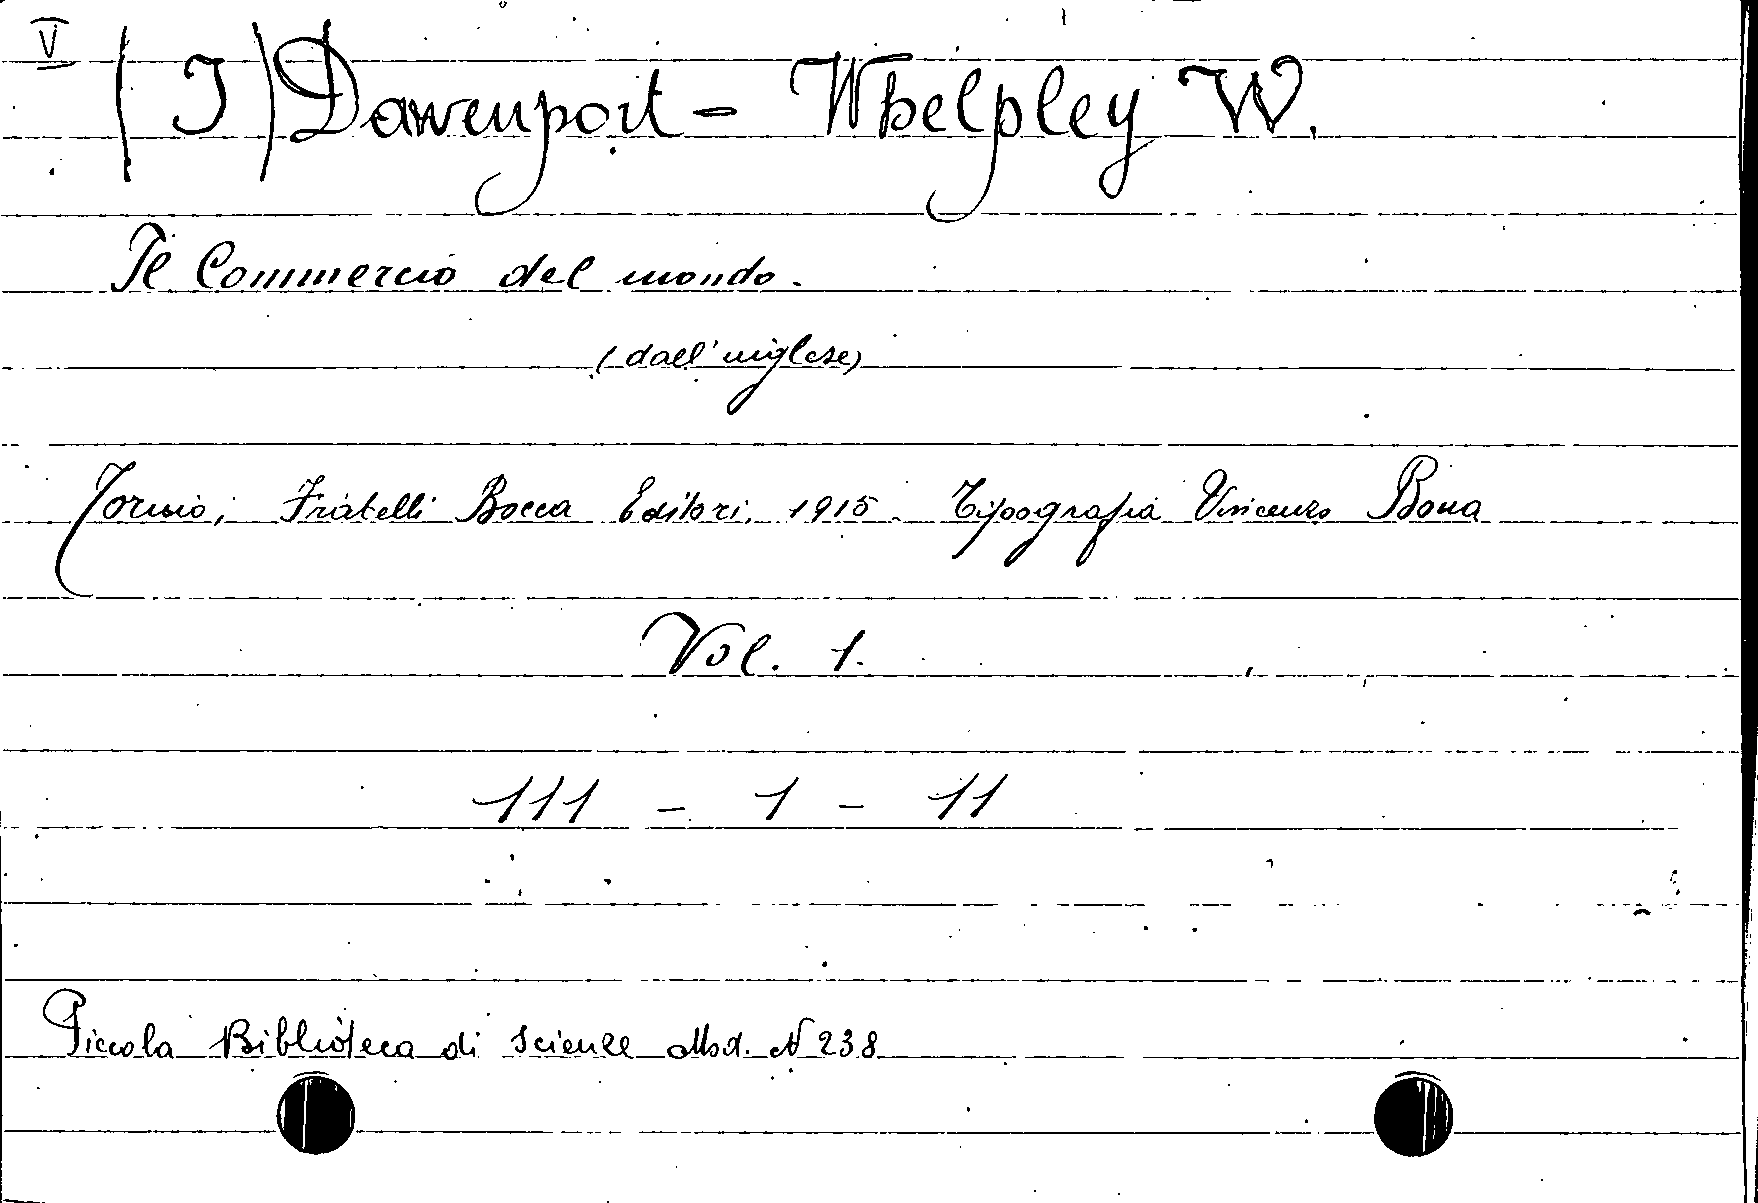 V
(J) Davenport - Whelpley W.
Il Commercio del mondo.
(dall'inglese)
Torino, Fratelli Bocca Editori, 1915. Tipografia Vincenzo Bona
Vol. 1.
111 - 1 - 11
Piccola Biblioteca di Scienze Mod. N 238